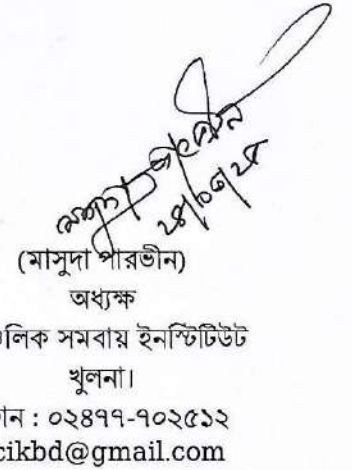 (মাসুদা পারভীন)
অধ্যক্ষ
লিক সমবায় ইনস্টিটিউট
খুলনা।
ন : ০২৪৭৭-৭০২৫১২
cikbd@gmail.com